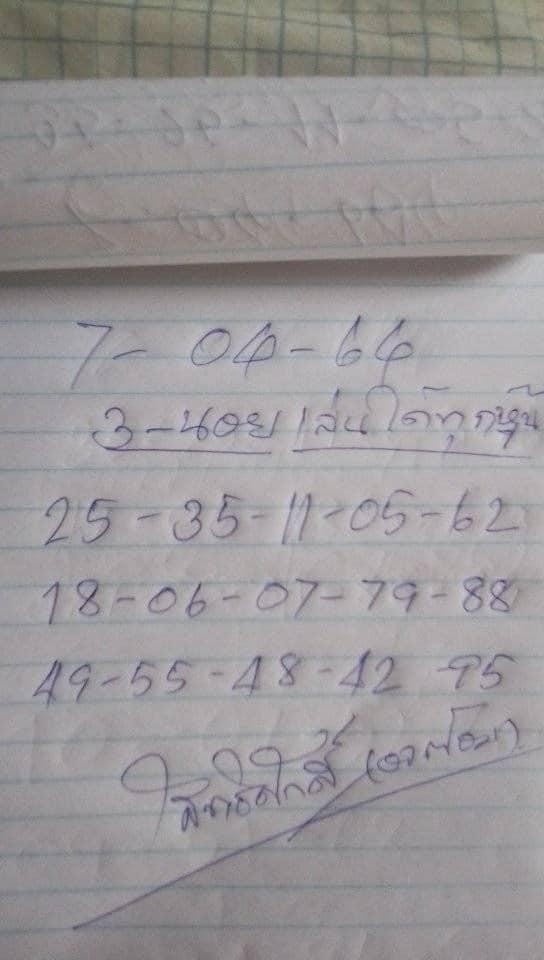 7- 04-64
3-นอย เล่นได้ทุกหุ้น
25-35-11-05-62
18-06-07-79-88
49-55-48-42 95